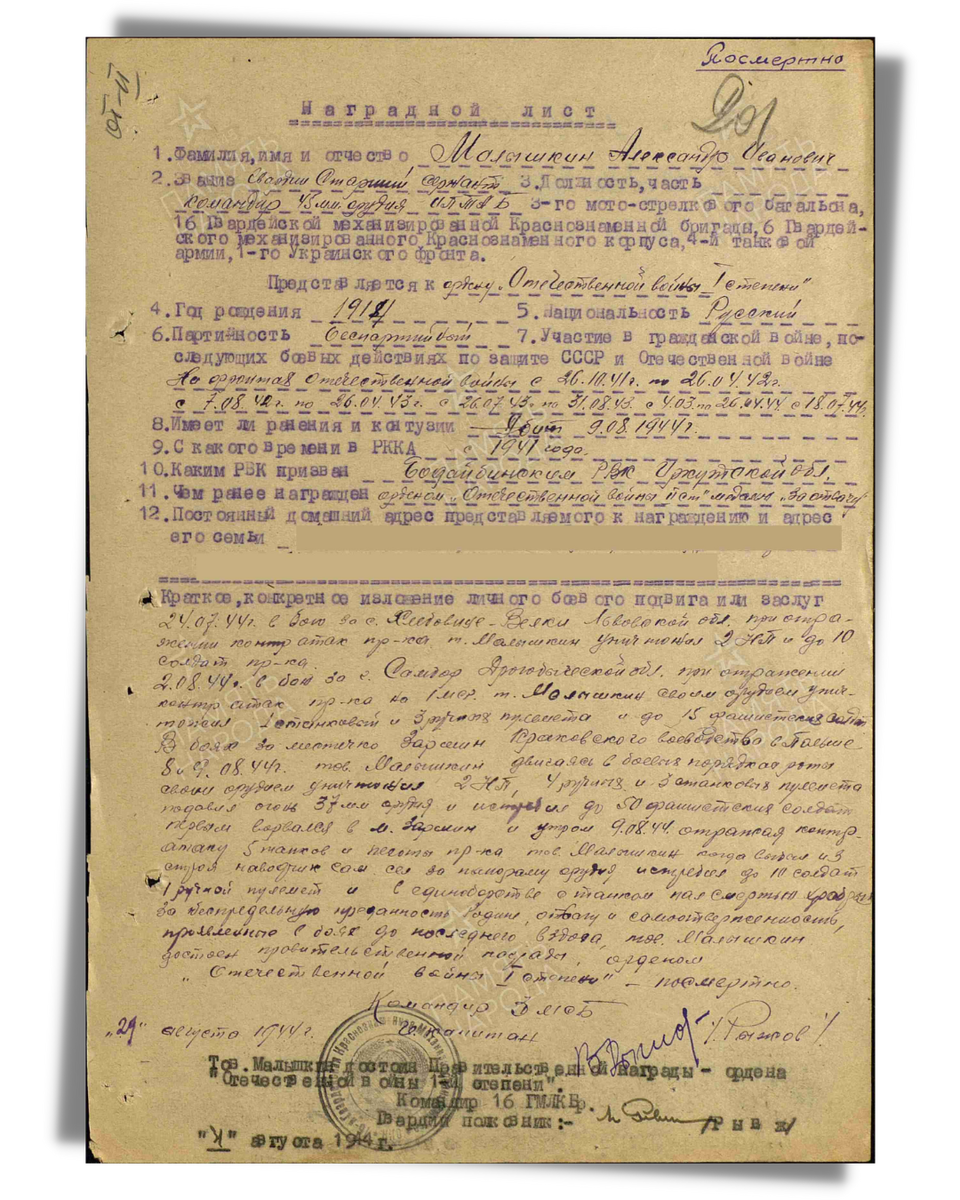 Посмертно
Наградной лист
1. Фамилия, имя и отчество Малышкин Александр Иванович
2. Звание Гвардии Старший сержант 3. Должность, часть
командир 45 мм орудия ИПТАБ 3-го мото-стрелкового батальона,
16 Гвардейской механизированной Краснознаменной бригады, 6 Гвардей-
ского механизированного Краснознаменного корпуса, 4-й танковой
армии, 1-го Украинского фронта.
Представляется к ордену "Отечественной войны I степени"
4. Год рождения 1918 5. Национальность Русский
6. Партийность беспартийный 7. Участие в гражданской войне, по-
следующих боевых действиях по защите СССР и Отечественной войне
На фронтах Отечественной войны с 26.10.41г. по 26.04.42г.
с 7.08.42г. по 26.04.43г. с 26.07.43 по 31.08.43. с 4.03 по 26.04.44. с 18.07.44г.
8. Имеет ли ранения и контузии Убит 9.08.1944г.
9. С какого времени в РККА с 1941 года.
10. Каким РВК призван Бодайбинским РВК Иркутской обл.
11. Чем ранее награжден орденом "Отечественной война II ст" медаль "За отвагу"
12. Постоянный домашний адрес представляемого к награждению и адрес
его семьи
Краткое, конкретное изложение личного боевого подвига или заслуг
24.07.44г. в бою за с. Велки Львовской обл. при отра-
жении контратак пр-ка т. Малышкин уничтожил 2 НП и до 10
солдат пр-ка.
2.08.44г. в бою за г. Самбор Дрогобычской обл. при отражении
контратак пр-ка т. Малышкин своим орудием унич-
тожил 1 станковый и 3 ручных пулемета и до 15 фашистских солдат
В боях за местечко Заршин Краковского воеводства в Польше
8 и 9.08.44г. тов. Малышкин двигаясь в боевых порядках роты
своим орудием уничтожил 2 НП, 4 ручных и 3 станковых пулемета
подавил огонь 37 мм орудия и истребил до 50 фашистских солдат
первым ворвался в м. Заршин и утром 9.08.44. отражая контр-
атаку 5 танков и пехоты пр-ка тов. Малышкин когда выбыл из
строя наводчик сам сел за панораму орудия истребил до 10 солдат
1 ручной пулемет и в единоборстве с танком пал смертью храбрых
За беспредельную преданность Родине, отвагу и самоотверженность,
проявленные в боях до последнего вздоха, тов. Малышкин
достоин правительственной награды, орденом
"Отечественной война I степени" - посмертно.
Командир 3 МСБ
"29" августа 1944г. Гв. капитан /Рыжов/
Тов. Малышкин достоин Правительственной награды - ордена
"Отечественной войны 1-й степени".
Командир 16 ГМКБр.
Гвардии полковник:- /Рывж/
августа 1944г.